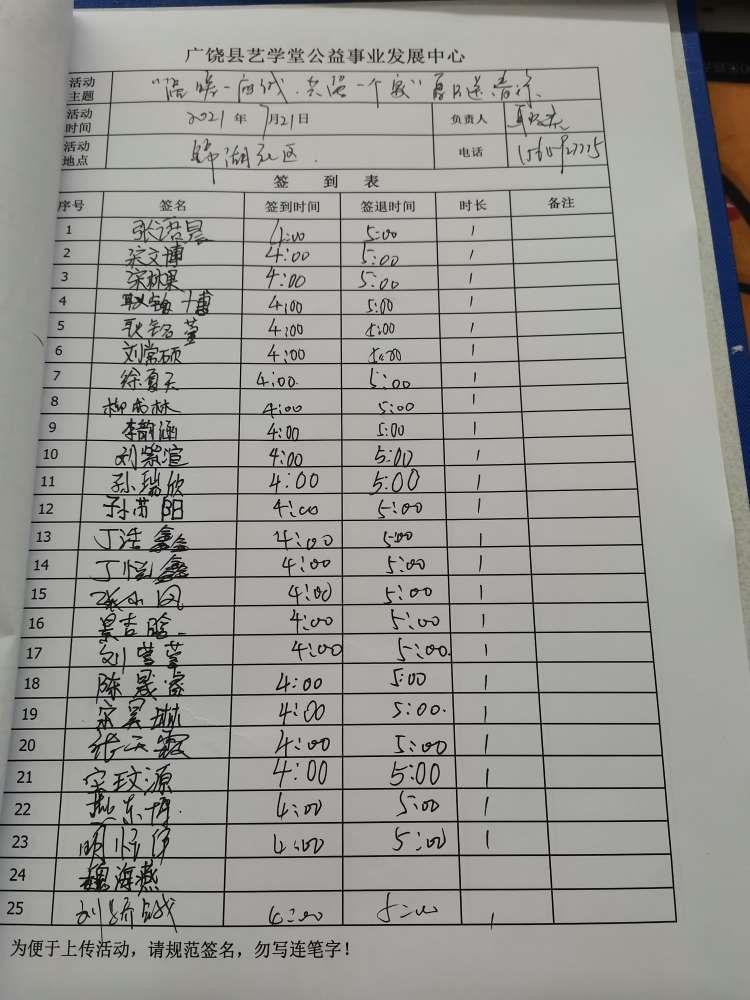 广饶县艺学堂公益事业发展中心
活动主题 "温暖一座城·共
活动时间 2021年7月21日 负责人
活动地点 锦湖社区. 电话
签到表
序号 签名 签到时间 签退时间 时长 备注
1 张语晨 4:00 5:00 1
2 宋文博 4:00 5:00 1
3 宋林果 4:00 5:00 1
4 4:00 5:00 1
5 4:00 5:00 1
6 刘常硕 4:00 5:00 1
7 徐夏天 4:00 5:00 1
8 柳成林 4:00 5:00 1
9 李韵涵 4:00 5:00 1
10 刘紫渲 4:00 5:00 1
11 孙瑞欣 4:00 5:00 1
12 4:00 5:00 1
13 丁浩鑫 4:00 5:00 1
14 丁恺鑫 4:00 5:00 1
15 张小凤 4:00 5:00 1
16 4:00 5:00 1
17 4:00 5:00. 1
18 陈晟睿 4:00 5:00 1
19 宋昊琳 4:00 5:00. 1
20 张天霞 4:00 5:00 1
21 宋玟源 4:00 5:00 1
22 4:00 5:00 1
23 4:00 5:00 1
24 魏海燕
25 4:00 5:00 1
为便于上传活动，请规范签名，勿写连笔字！